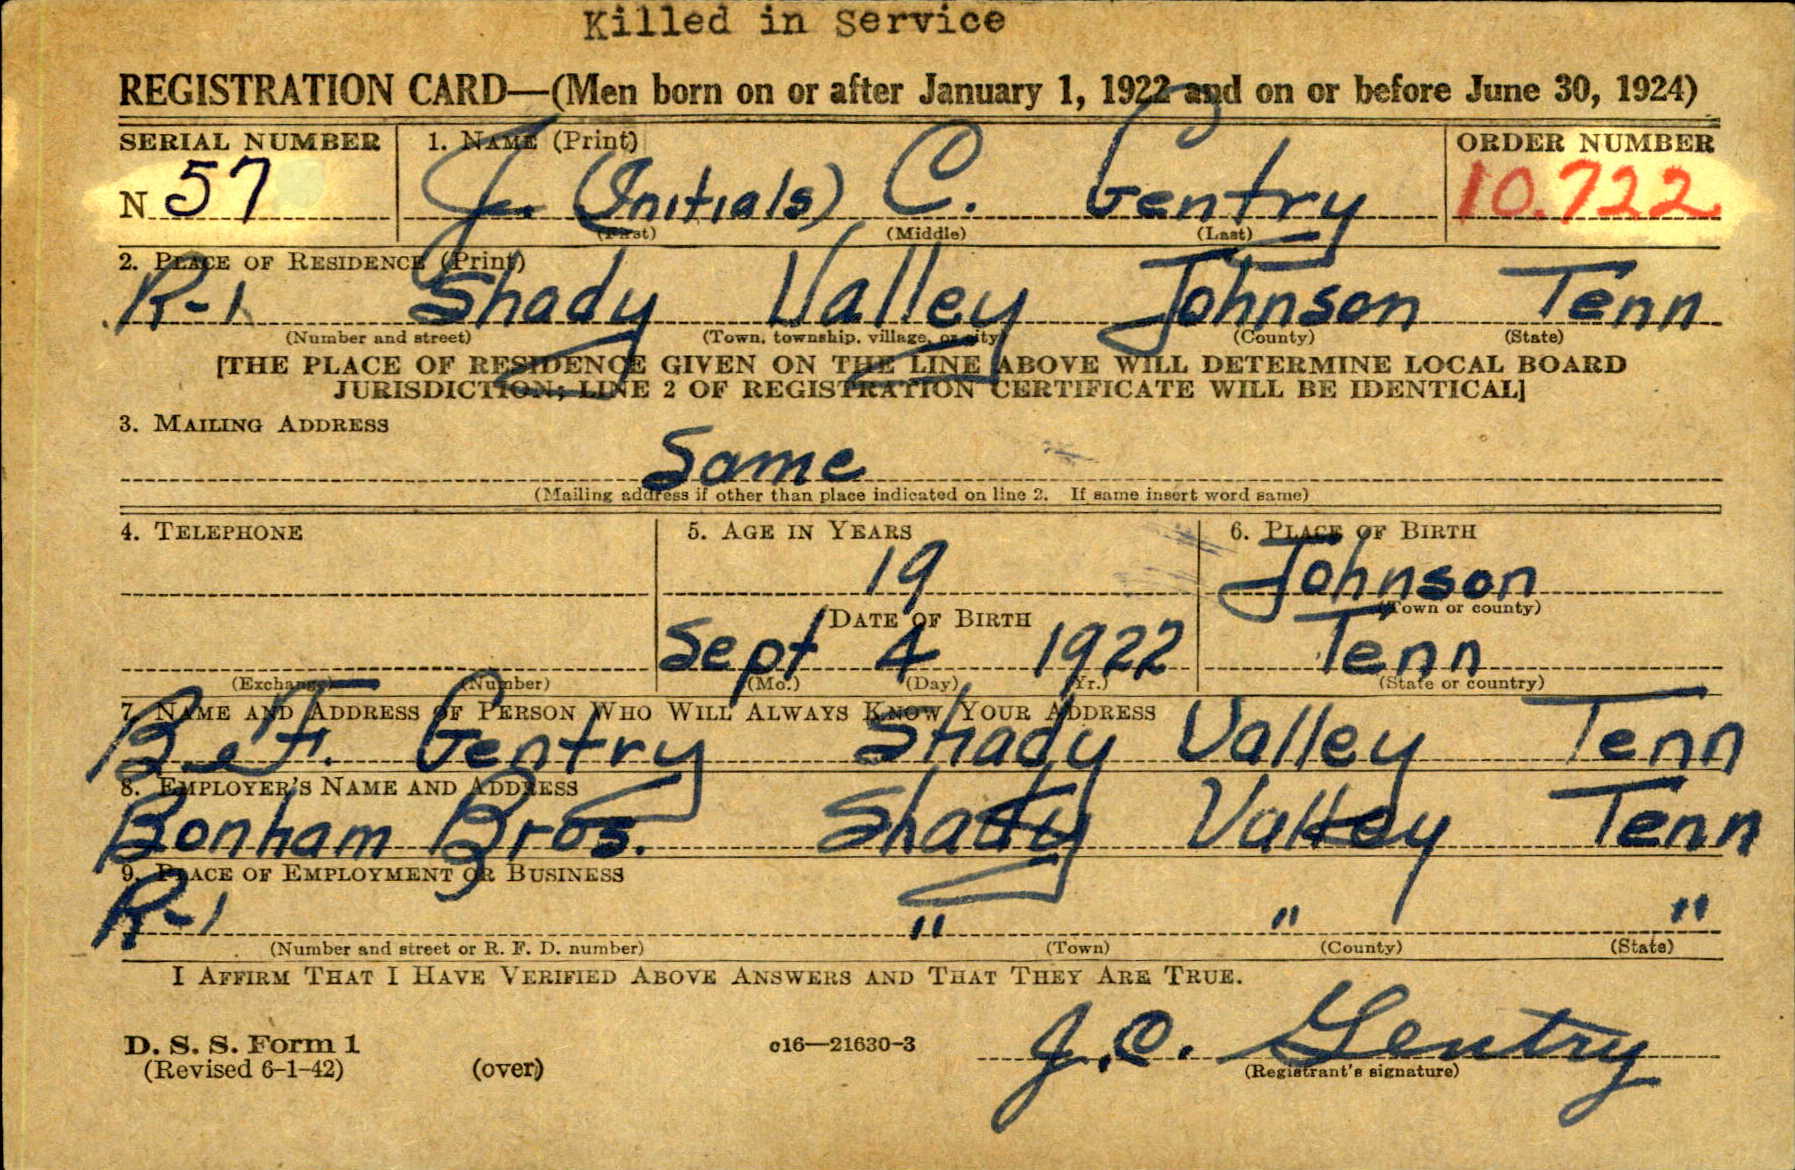 Killed in Service
REGISTRATION CARD—(Men born on or after January 1, 1922 and on or before June 30, 1924)
SERIAL NUMBER 1. NAME (Print) ORDER NUMBER
N 57 J. (Initials) C. Gentry 10.722
(First) (Middle) (Last)
2. PLACE OF RESIDENCE (Print)
R-1 Shady Valley Johnson Tenn
(Number and street) (Town, township, village, or city) (County) (State)
[THE PLACE OF RESIDENCE GIVEN ON THE LINE ABOVE WILL DETERMINE LOCAL BOARD
JURISDICTION; LINE 2 OF REGISTRATION CERTIFICATE WILL BE IDENTICAL]
3. MAILING ADDRESS
Same
(Mailing address if other than place indicated on line 2. If same insert word same)
4. TELEPHONE 5. AGE IN YEARS 6. PLACE OF BIRTH
19 Johnson
DATE OF BIRTH (Town or county)
Sept 4 1922 Tenn
(Exchange) (Number) (Mo.) (Day) (Yr.) (State or country)
7. NAME AND ADDRESS OF PERSON WHO WILL ALWAYS KNOW YOUR ADDRESS
Gentry Shady Valley Tenn
8. EMPLOYER'S NAME AND ADDRESS
Bonham Bros. Shady Valley Tenn
9. PLACE OF EMPLOYMENT OR BUSINESS
R-1 " " "
(Number and street or R. F. D. number) (Town) (County) (State)
I AFFIRM THAT I HAVE VERIFIED ABOVE ANSWERS AND THAT THEY ARE TRUE.
D. S. S. Form 1 c16—21630-3 J. C. Gentry
(Revised 6-1-42) (over) (Registrant's signature)